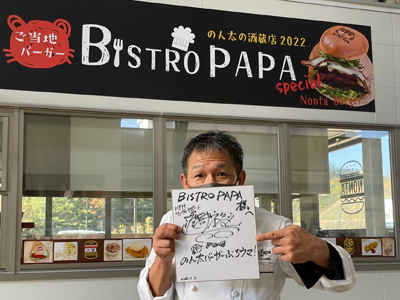 ご当地
バーガー
BISTRO PAPA
のん太の酒蔵店 2022
special
Nonta Burger
NONTA
BISTRO PAPA
様へ
のん太バーガーぶちウマ!